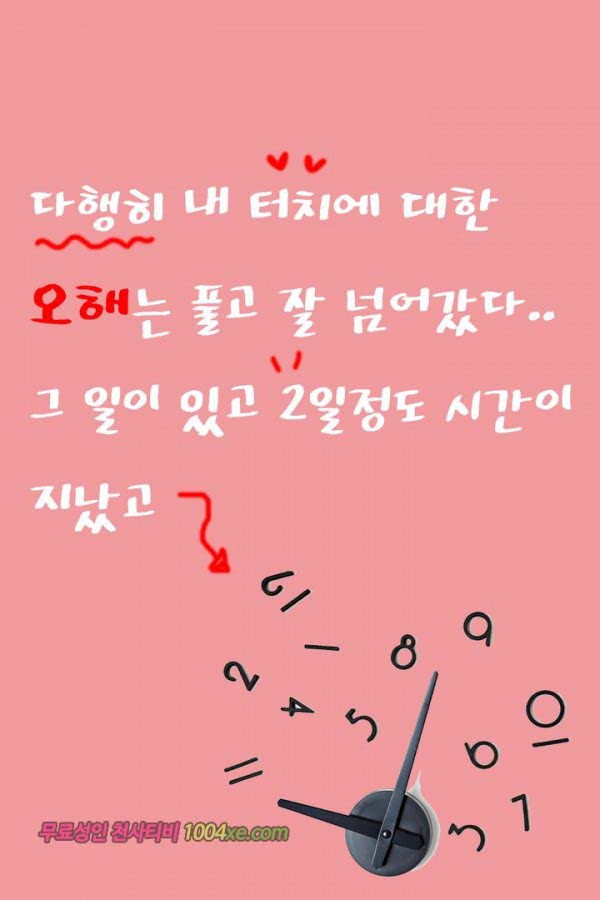 다행히 내 터치에 대한
오해는 풀고 잘 넘어갔다..
그 일이 있고 2일정도 시간이
지났고
12
1
8
9
2
4
5
10
6
11
7
3
무료성인 천사티비 1004xe.com